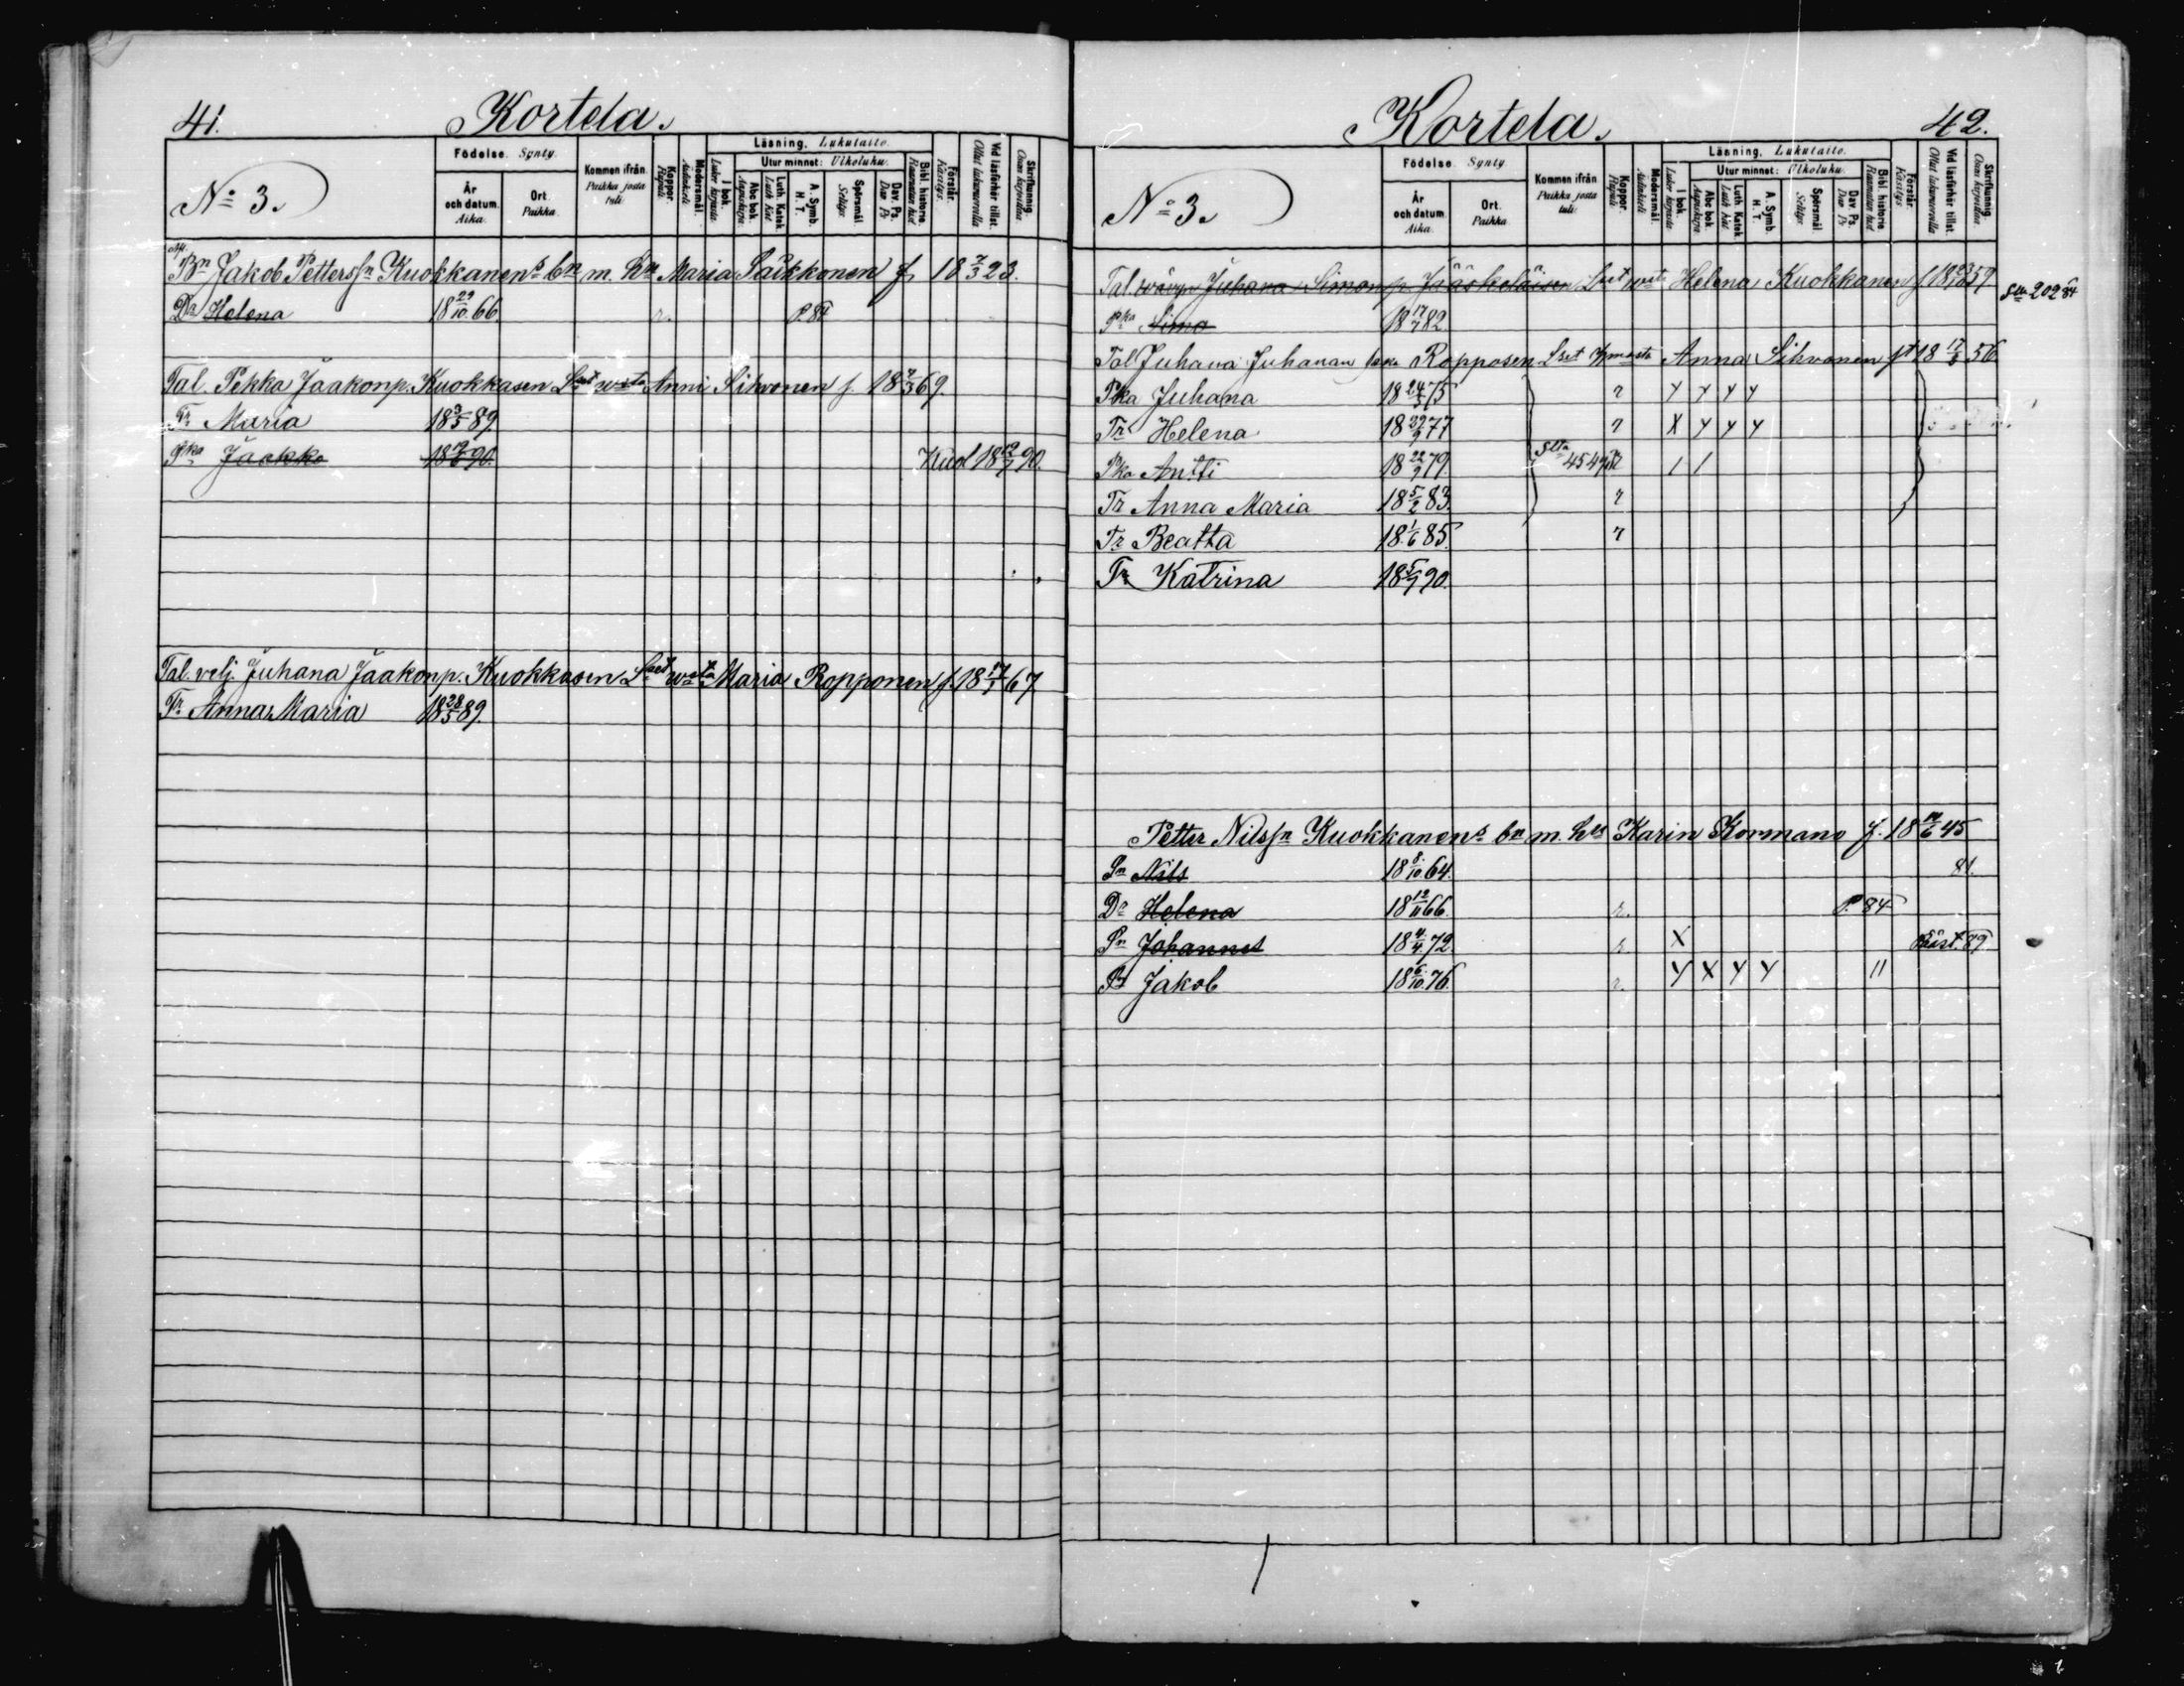 41. Kortela.
Nº 3.
Födelse. Synty.
År och datum. Aika.
Ort. Paikka.
Kommen ifrån. Paikka josta tuli.
Koppor. Rupuli.
Modersmål. Äidinkieli.
Läsning. Lukutaito.
I bok. Luku kirjasta.
Utur minnet: Ulkoluku.
Abc bok. Aapiskirja.
Luth. Katek. Luth. Kat.
A. Symb. H. T.
Spörsmål. Selitys.
Dav. Ps. Dav. Ps.
Bibl. historie. Raamatun hist.
Förstår. Käsitys.
Vid läsförhör tillst. Ollut lukuvuorolla
Skriftkunnig. Osaa kirjoittaa.
Bn Jakob Petterssn Kuokkanens bn m. hu Maria Säikkönen f. 18 7/3 23.
Dr Helena 18 29/10 66. r. P. 84
Tal. Pekka Jaakonp. Kuokkasen Lset wsta Anni Sihvonen f. 18 7/3 69.
Tr Maria 18 3/5 89.
Pka Jaakko 18 19/6 90. Kuol 18 12/7 90.
Tal. velj. Juhana Jaakonp. Kuokkasen Lset wsta Maria Ropponen f. 18 17/1 67
Tr Anna Maria 18 28/5 89.
Kortela. 42.
Nº 3.
Födelse. Synty.
År och datum. Aika.
Ort. Paikka.
Kommen ifrån. Paikka josta tuli.
Koppor. Rupuli.
Modersmål. Äidinkieli.
Läsning. Lukutaito.
I bok. Luku kirjasta.
Utur minnet: Ulkoluku.
Abc bok. Aapiskirja.
Luth. Katek. Luth. Kat.
A. Symb. H. T.
Spörsmål. Selitys.
Dav. Ps. Dav. Ps.
Bibl. historie. Raamatun hist.
Förstår. Käsitys.
Vid läsförhör tillst. Ollut lukuvuorolla
Skriftkunnig. Osaa kirjoittaa.
Tal. wävyn Juhana Simonp. Jääskeläisen Lset wsta Helena Kuokkanen f. 18 59 202 84
Pka Simo 18 17/7 82.
Tal Juhana Juhanan Ropposen Lset Anna Sihvonen st 18 17/3 56
Pka Juhana 18 24/3 75 r Y Y Y Y
Tr Helena 18 29/9 77 r X Y Y Y
Pka Antti 18 22/9 79. Slla 454 r / /
Tr Anna Maria 18 5/2 83. r
Tr Beatta 18 1/6 85. r
Tr Katrina 18 5/9 90.
Petter Nilssn Kuokkanens bn m. hu Karin Kormano f. 18 14/6 45
Sn Nils 18 8/10 64. 81.
Dr Helena 18 12/11 66. r. P. 84
Sn Johannes 18 4/4 72. r. X 89.
Sn Jakob 18 6/10 76. r. Y X Y Y 11